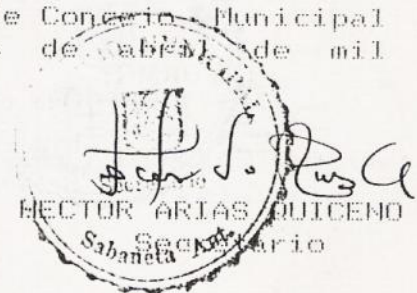 e Concejo Municipal
de abril de mil
HECTOR ARIAS QUICENO
Secretario
Sabaneta Ant.